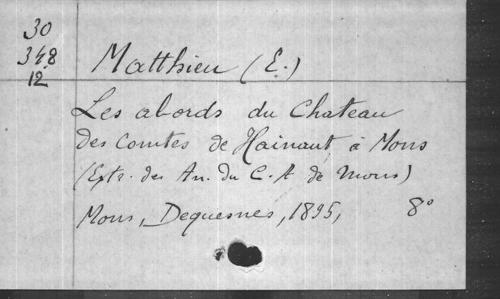 30
348
12
Matthieu (E.)
Les abords du Chateau
des Comtes de Hainaut à Mons
(Extr. des An. du C. A. de Mons)
Mons, Dequesnes, 1895, 8°